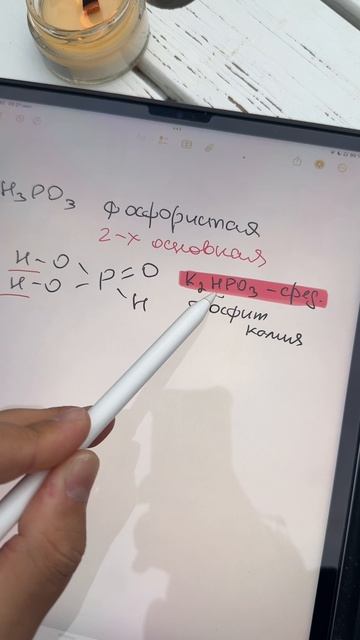 H₃PO₃ фосфористая
2-х основная
H-O
P=O
H-O
H
K₂HPO₃ - сред.
фосфит
калия